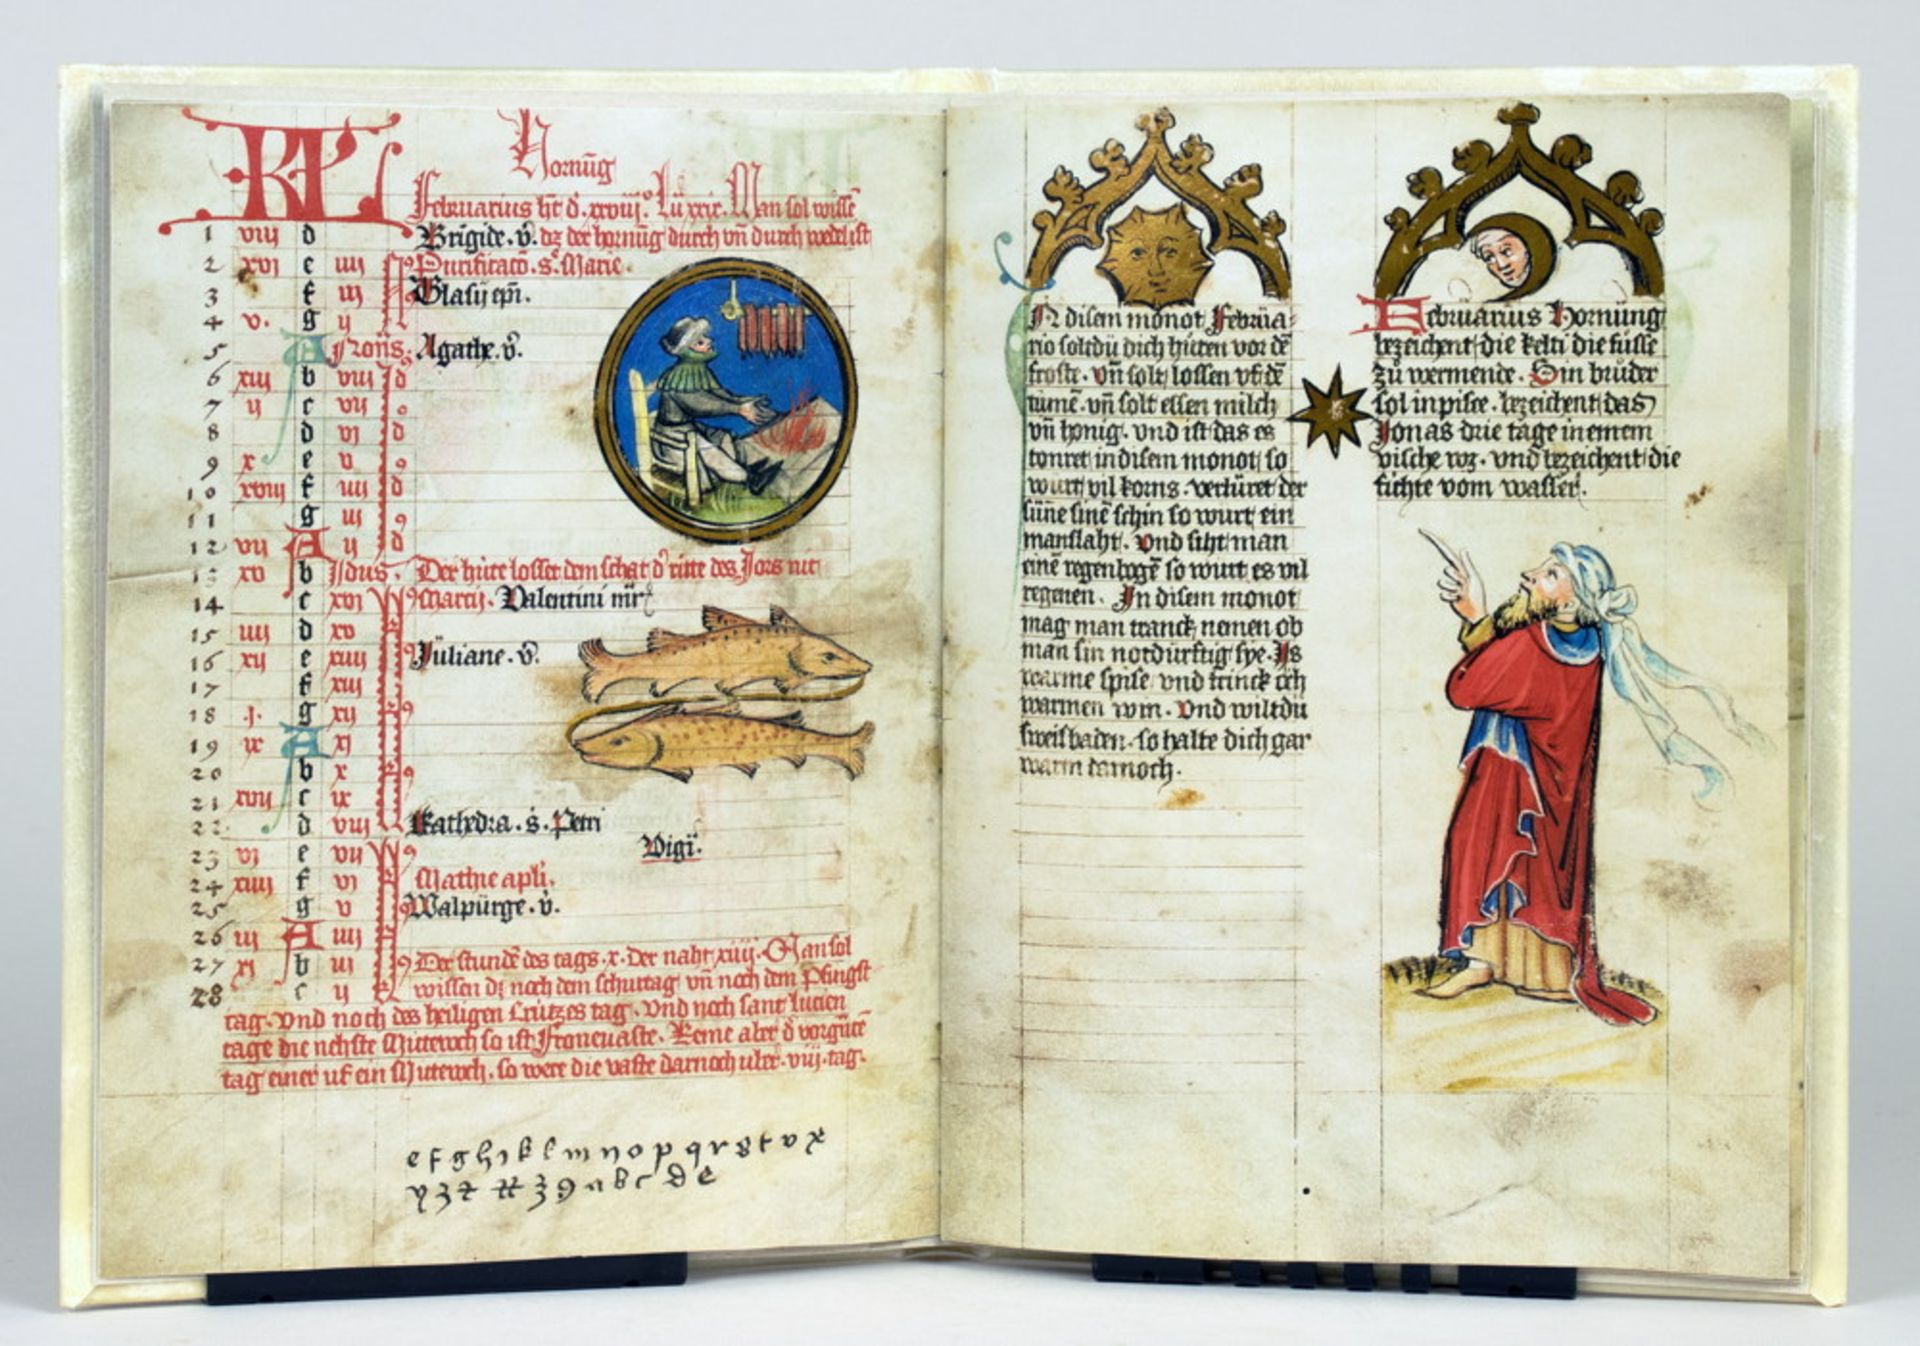 KL
Hornūg
Februarius ht d. xxviij. Lū xxix. Man sol wissē
1 viij d Brigide. v̄. dz der hornūg durch vn̄ durch wedel ist
2 xvj e iiij Purificatō. s. Marie.
3 f iij Blasij epī.
4 v. g ij
5 A Nōñs. Agathe. v̄.
6 xiij b viij d9
7 ij c vij
8 d vj d
9 x e v
10 xviij f iiij d
11 g iij
12 vij A ij d
13 xv b Jdus. Der hūte losset dem schat d ritte des Jors nit
14 c xvj Marcij. Valentini mr̄
15 iiij d xv
16 xij e xiiij Jūliane. v̄.
17 f xiij
18 .j. g xij
19 ix A xj
20 b x
21 xvij c ix
22 d viij Kathedra. s. Petri
23 vj e vij Vigī.
24 xiiij f vj Mathie apli.
25 g v Walpūrge. v̄.
26 iij A iiij
27 xj b iij Der stundē des tags. x. der naht xiiij. Man sol
28 c ij wissen dz noch dem schurtag vn̄ noch dem Pfingst
tag. Vnd noch des heiligen Crützes tag. Vnd noch sant Lucien
tage die nehste Mittewch so ist Fronevaste. Keme aber d vorgūtē
tag einer uf ein Mittewch. so were die vaste darnoch uber. viij. tag.
e f g h i k l m n o p q r s t v x
y z a b c d e
In disem monot Februa-
rio soltdu dich hüten vor dē
froste. Vn̄ solt lossen vf dē
tumē. vn̄ solt essen milch
vn̄ honig. Vnd ist das es
tonret in disem monot so
wurt vil korns. verlüret der
sünne sinē schin so wurt ein
manslaht. Vnd siht man
einē regenbogē so wurt es vil
regenen. In disem monot
mag man tranck nemen ob
man sin notdurftig sye. Is
warme spise vnd trinck och
warmen win. Vnd wiltdu
sweisbaden. so halte dich gar
warm darnoch.
Februarius Hornung
bezeichent die kelti die füsse
zu wermende. Sin bruder
sol in pisce. bezeichent das
Jonas drie tage in einem
vische wz. vnd bezeichent die
füchte vom wasser.